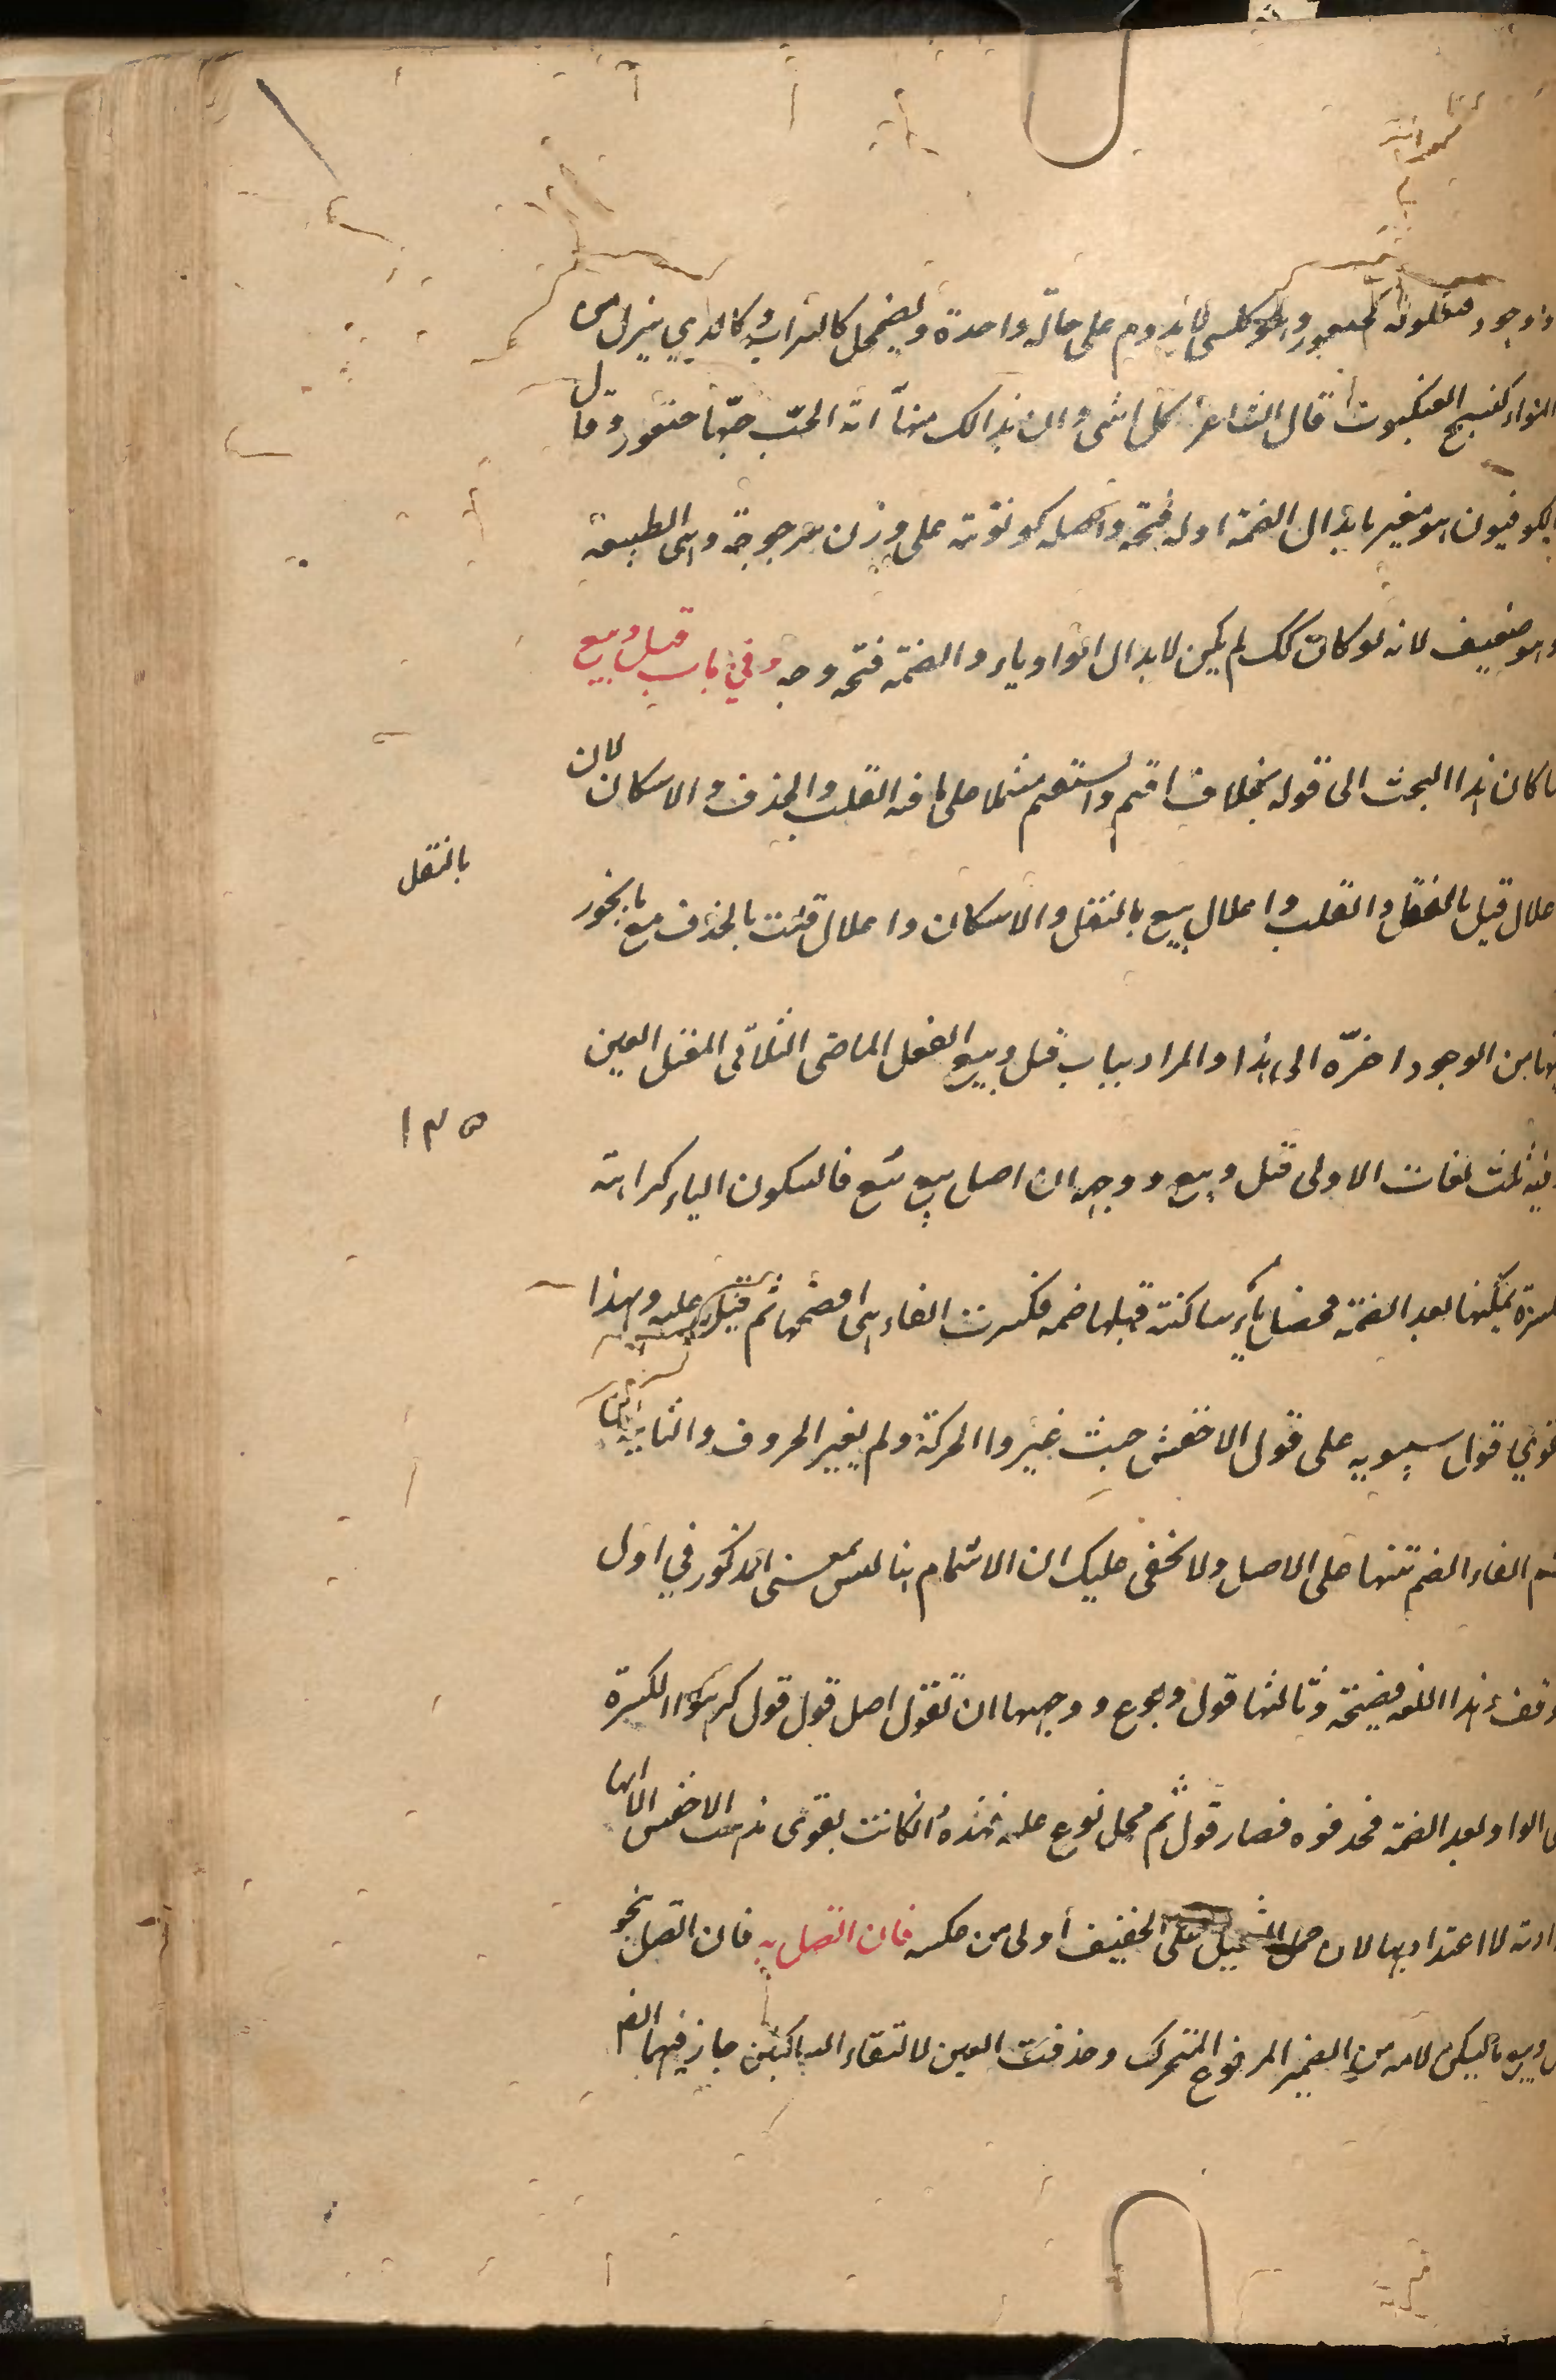 وجود كخيتعور وهو كلشى لا يدوم على حالة واحدة ويضمحل كالسراب وكالذي ينزل من
الهواء كنسج العنكبوت قال الشاعر كل انثى وان بدا لك منها اية الحب حبها خيتعور وقال
الكوفيون هو مغير بابدال الضمة اوله فتحة واصله كونونة على وزن سرجوجة وهى الطبيعة
وهو ضعيف لانه لو كان كك لم يكن لابدال الواو ياء والضمة فتحة وجه وفي باب قيل وبيع
ما كان هذا البحث الى قوله بخلاف اقيم واستقيم مشتملا على ما فيه القلب والحذف والاسكان لان
اعلال قيل بالنقل والقلب واعلال بيع بالنقل والاسكان واعلال قلت بالحذف مع ما يجوز
بالنقل
فيها من الوجوه اخره الى هذا والمراد بباب قيل وبيع الفعل الماضى الثلاثى المعتل العين
وفيه ثلث لغات الاولى قيل وبيع ووجه ان اصل بيع بيع فاسكون الياء كراهة
١٣٥
الكسرة يمكنها بعد الضمة فحصل ياء ساكنة قبلها ضمه فكسرت الفاء اى ضمها ثم قيل عليه وبهذا
قوي قول سيبويه على قول الاخفش حيث غيروا الحركة ولم يغير الحروف والثانية
شم الفاء الضم تنبيها على الاصل ولا يخفى عليك ان الاشمام هنا ليس بمعنى المذكور في اول
وقف هذا اللغه فصيحة وثالثها قول وبوع ووجهها ان تقول اصل قول قول كرهوا الكسرة
على الواو بعد الضمة فحذفوه فصار قول ثم حمل بوع عليه فهذه وانكانت يقوى مذهب الاخفش الا انها
لا اعتداد بها لان حمل الثقيل على الخفيف أولى من عكسه فان اتصل به فان اتصل بنحو
وبيع ما يسكن لامه من الضمير المرفوع المتحرك وحذفت العين لالتقاء الساكنين جاز فيهما الضم